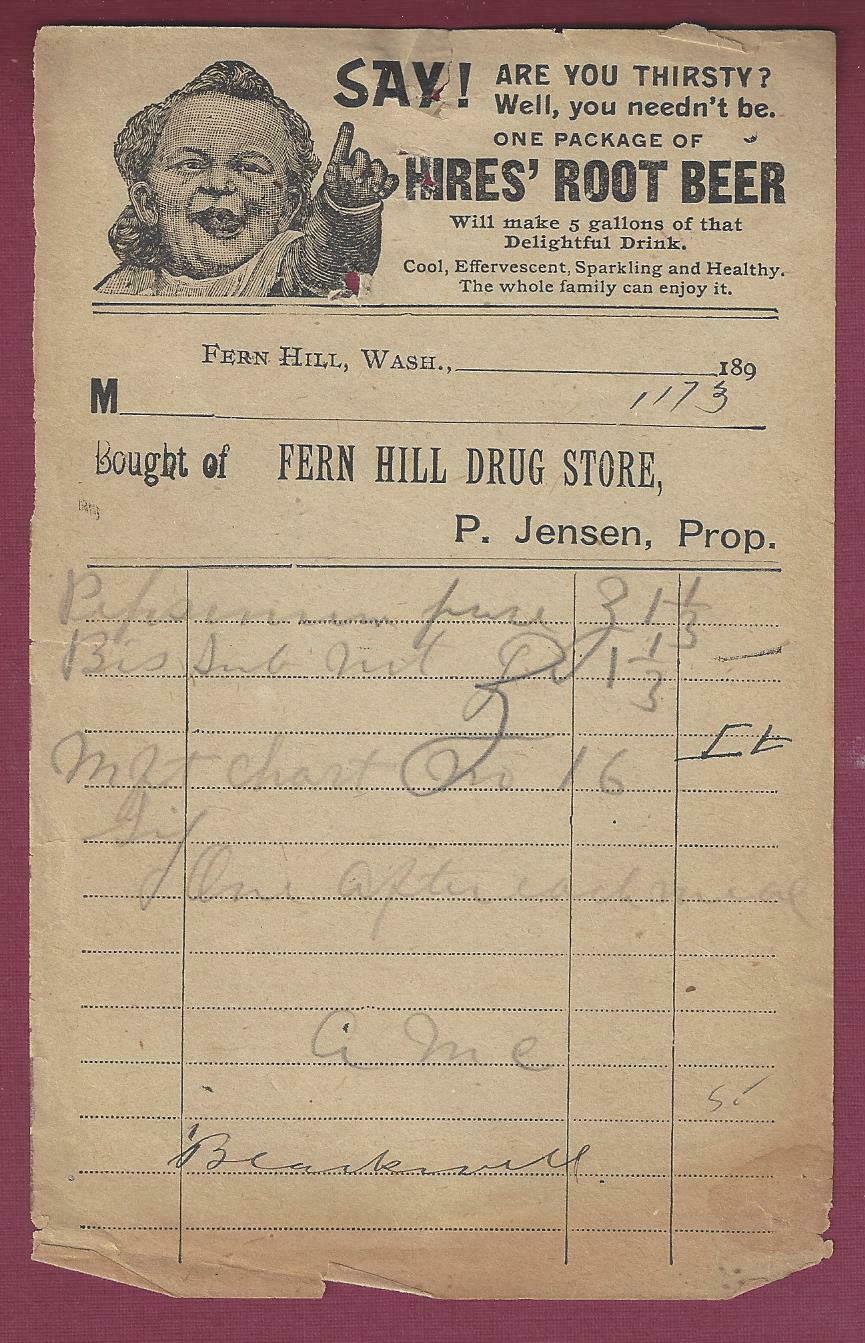 SAY! ARE YOU THIRSTY?
Well, you needn't be.
ONE PACKAGE OF
HIRES' ROOT BEER
Will make 5 gallons of that
Delightful Drink.
Cool, Effervescent, Sparkling and Healthy.
The whole family can enjoy it.
FERN HILL, WASH., 189
1173
M
Bought of FERN HILL DRUG STORE,
P. Jensen, Prop.
pure ʒ 1 1/3
Bis Sub Nit ʒ 1 1/3
Mft chart No 16
Sig
One after each meal
Blackwell